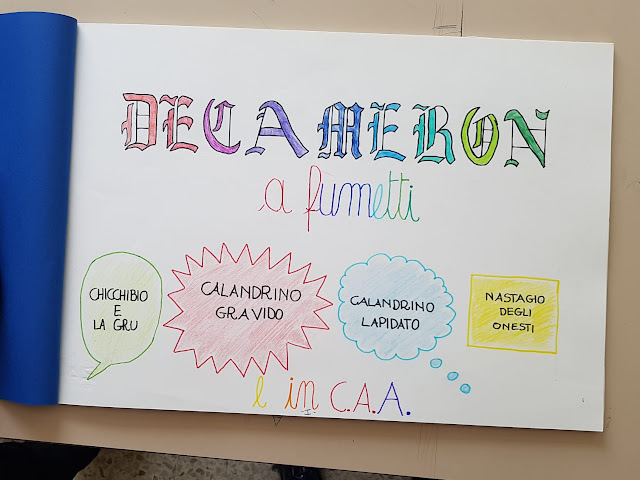 DECAMERON
a fumetti
CHICCHIBIO
E
LA GRU
CALANDRINO
GRAVIDO
CALANDRINO
LAPIDATO
NASTAGIO
DEGLI
ONESTI
e in C.A.A.